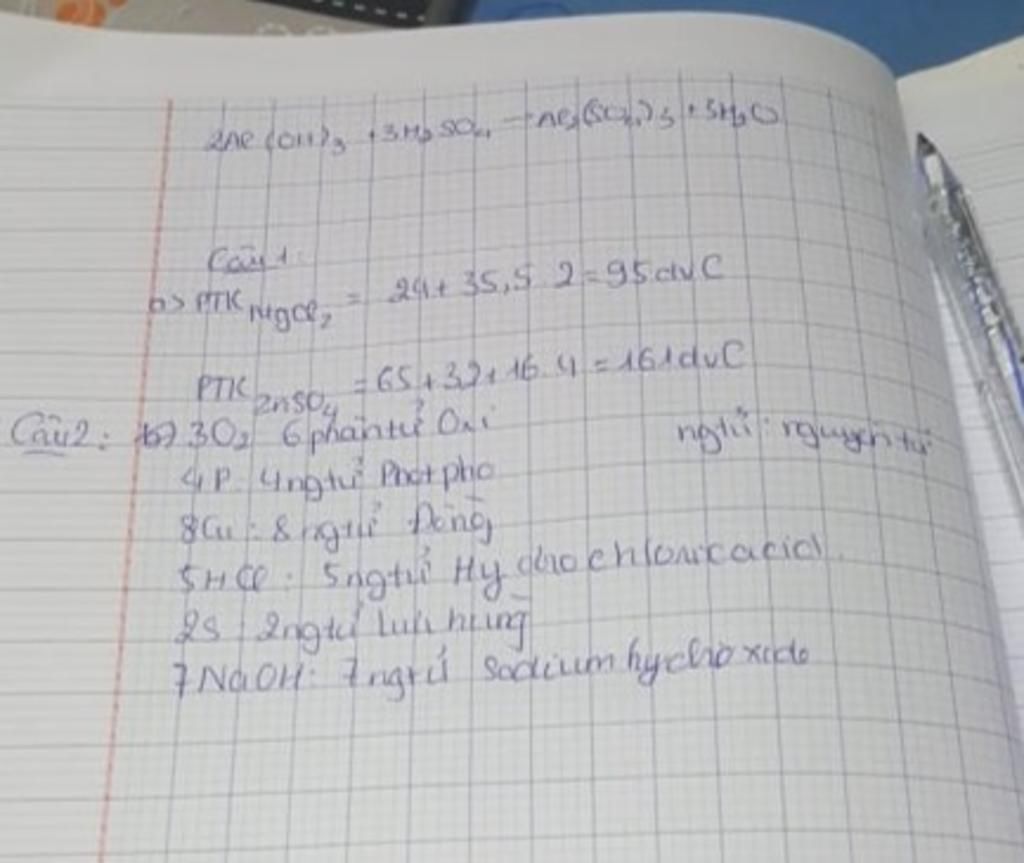 2Fe(OH)3 + 3H2SO4 → Fe2(SO4)3 + 3H2O
Câu 1:
b> PTK MgCl2 = 24 + 35,5 . 2 = 95 đvC
PTK ZnSO4 = 65 + 32 + 16 . 4 = 161 đvC
Câu 2: b> 3O2 6 phân tử Oxi ngtử: nguyên tử
4P: 4 ngtử Photpho
8Cu: 8 ngtử Đồng
5HCl: 5 ngtử Hydrochloric acid
2S: 2 ngtử lưu huỳng
7NaOH: 7 ngtử Sodium hydroxide